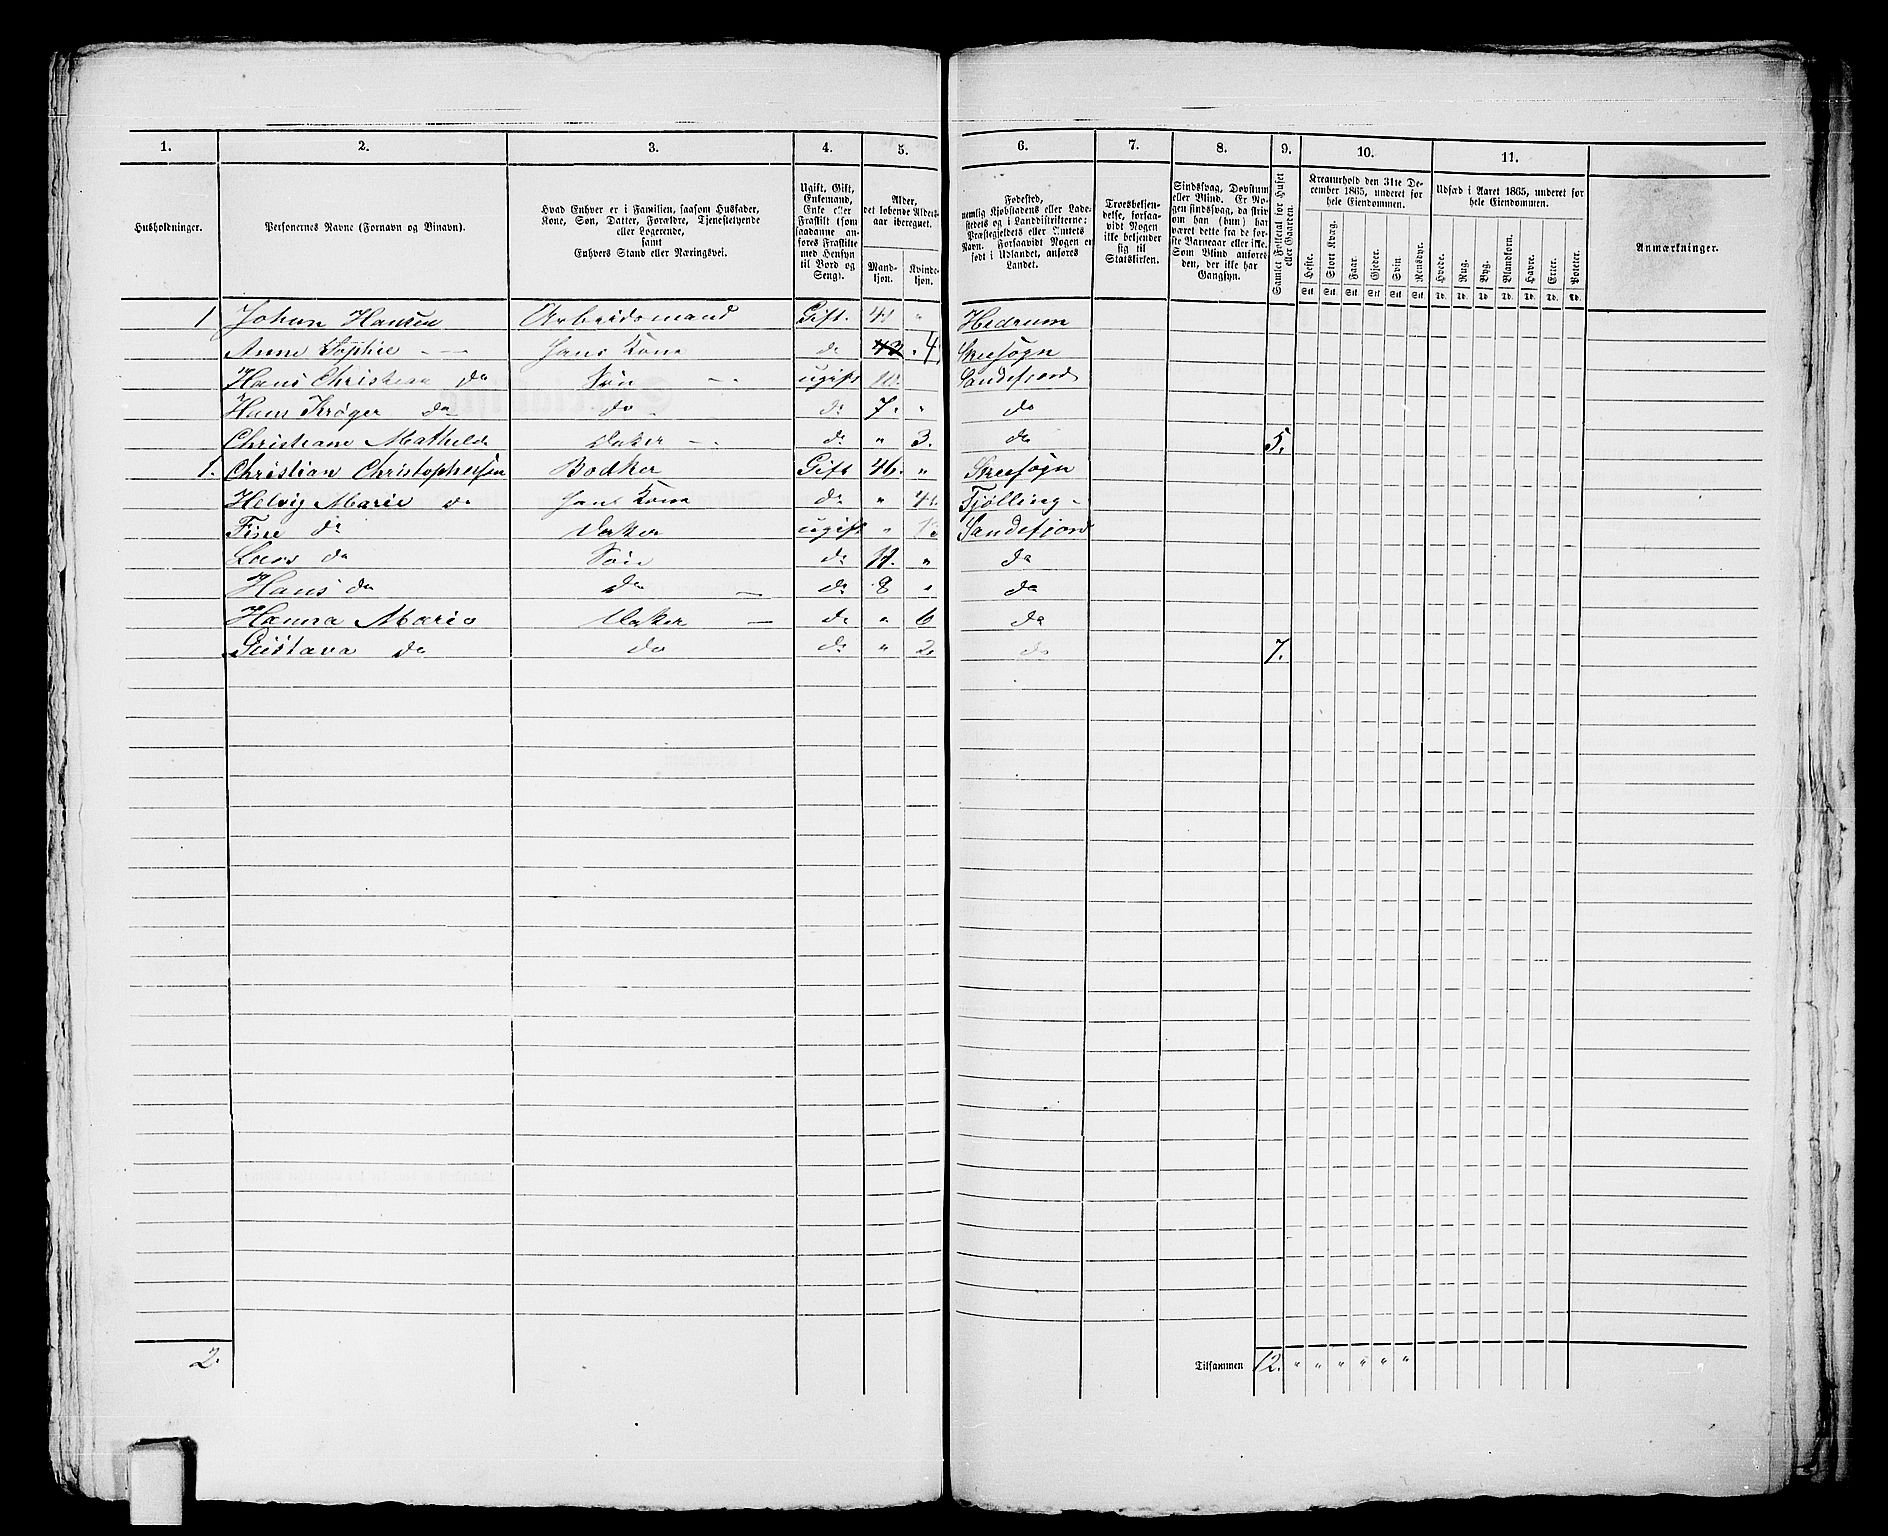 1. 2. 3. 4. 5. 6. 7. 8. 9. 10. 11.
Husholdninger.
Personernes Navne (Fornavn og Tilnavn).
Hvad Enhver er i Familien, saasom Husfader,
Kone, Søn, Datter, Forældre, Tjenestetyende
eller Logerende,
samt
Enhvers Stand eller Næringsvei.
Ugift, Gift,
Enkemand,
Enke eller
Fraskilt (som
saadanne an-
føres Fraskilte
med Hensyn
til Bord og
Seng).
Alder,
det løbende Alders-
aar iberegnet.
Mand-
kjøn.
Kvinde-
kjøn.
Fødested,
nemlig Kjøbstadens eller Lade-
stedets og i Landdistrikterne:
Præstegjeldets eller Amtets
Navn. Forsaavidt Nogen er
født i Udlandet, anføres
Landet.
Troesbekjen-
delse, forsaa-
vidt Nogen
ikke bekjender
sig til
Statskirken.
Sindssvag, Døvstum
eller Blind. Er No-
gen sindssvag, da skriv
om han (hun) har
været dette fra de før-
ste Barneaar eller ikke.
Som Blind anføres
den, der ikke har
Gangsyn.
Samlet Folketal for Huset
eller Gaarden.
Kreaturhold den 31te De-
cember 1865, underet for
hele Eiendommen.
Heste. Stort Kvæg. Faar. Gjeder. Svin. Rensdyr.
Stk. Stk. Stk. Stk. Stk. Stk.
Udsæd i Aaret 1865, underet for
hele Eiendommen.
Hvede. Rug. Byg. Blandkorn. Havre. Erter. Poteter.
Td. Td. Td. Td. Td. Td. Td.
Anmærkninger.
1 Johan Hansen Arbeidsmand Gift. 41 " Hedrum
Anne Sophie - - - Hans Kone do 43 " Skeesogn
Hans Christian do Søn - - ugift 10. Sandefjord
Hans Krøger do do - do 7. " do
Christiane Mathilde Datter - - do " 3. do 5.
1. Christian Christophersen Bødker Gift 46. " Skeesogn
Helvig Marie do Hans Kone do " Tjølling -
Fine do Datter ugift " Sandefjord
Lars do Søn do 11. " do
Hans do do - do 8 " do
Hanna Marie Datter - do " 6 do
Gustava do do do " 2. do 7.
2. Tilsammen 12. " " " " " "